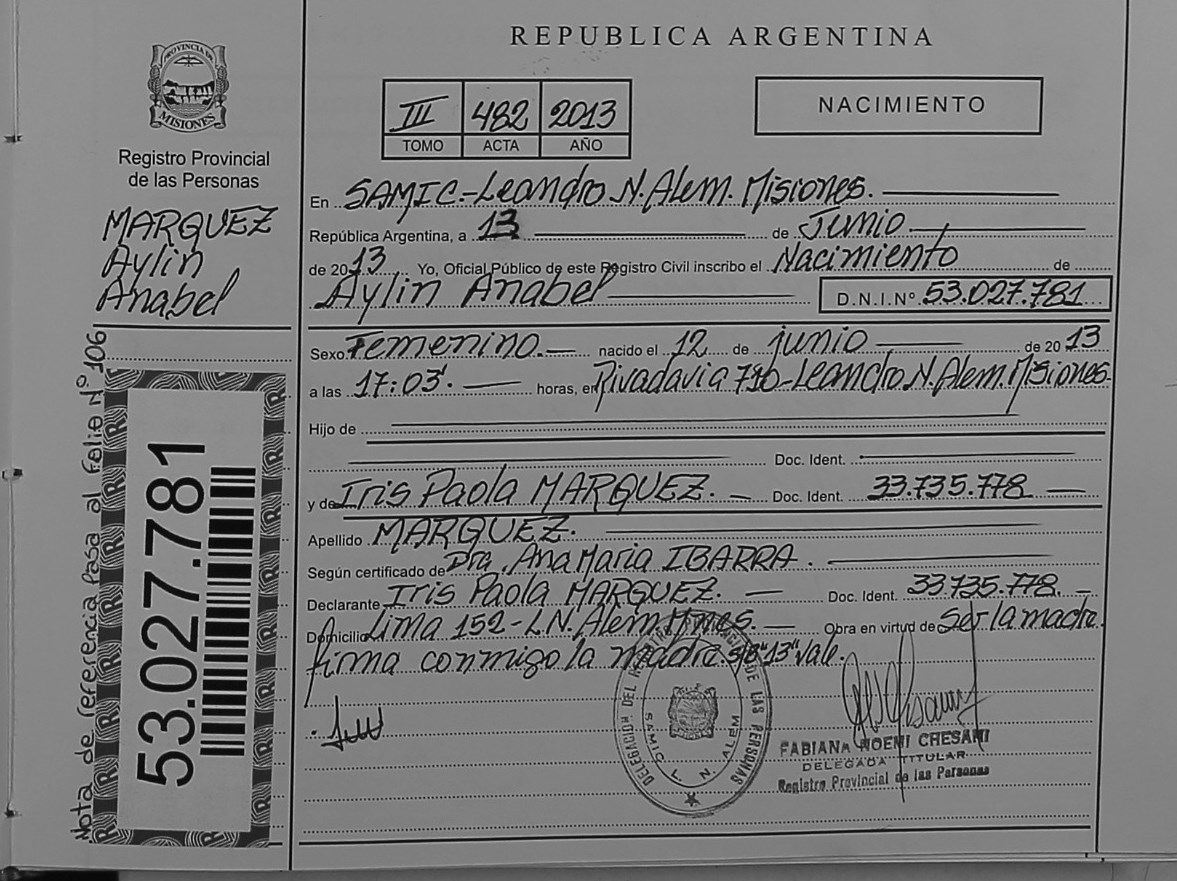 REPUBLICA ARGENTINA
PROVINCIA DE
MISIONES
Registro Provincial
de las Personas
MARQUEZ
Aylin
Anabel
Nota de referencia Pasa al Folio Nº 106
53.027.781
III 482 2013
TOMO ACTA AÑO
NACIMIENTO
En SAMIC.-Leandro N. Alem. Misiones.
República Argentina, a 13 de Junio
de 2013 Yo, Oficial Público de este Registro Civil inscribo el Nacimiento de
Aylin Anabel D.N.I.Nº 53.027.781
Sexo: Femenino. nacido el 12 de junio de 2013
a las 17:03'. horas, en Rivadavia 710-Leandro N. Alem. Misiones-
Hijo de
Doc. Ident.
y de Iris Paola MARQUEZ. Doc. Ident. 33.735.778
Apellido MARQUEZ.
Según certificado de Dra. Ana Maria IBARRA.
Declarante Iris Paola MARQUEZ. Doc. Ident. 33.735.778.
Domicilio Lima 152-L.N. Alem Mnes. Obra en virtud de ser la madre.
firma conmigo la madre. s/b "13" Vale.
DELEGACION DEL REGISTRO PROVINCIAL DE LAS PERSONAS
SAMIC L. N. ALEM
FABIANA NOEMI CHESANI
DELEGADA TITULAR
Registro Provincial de las Personas